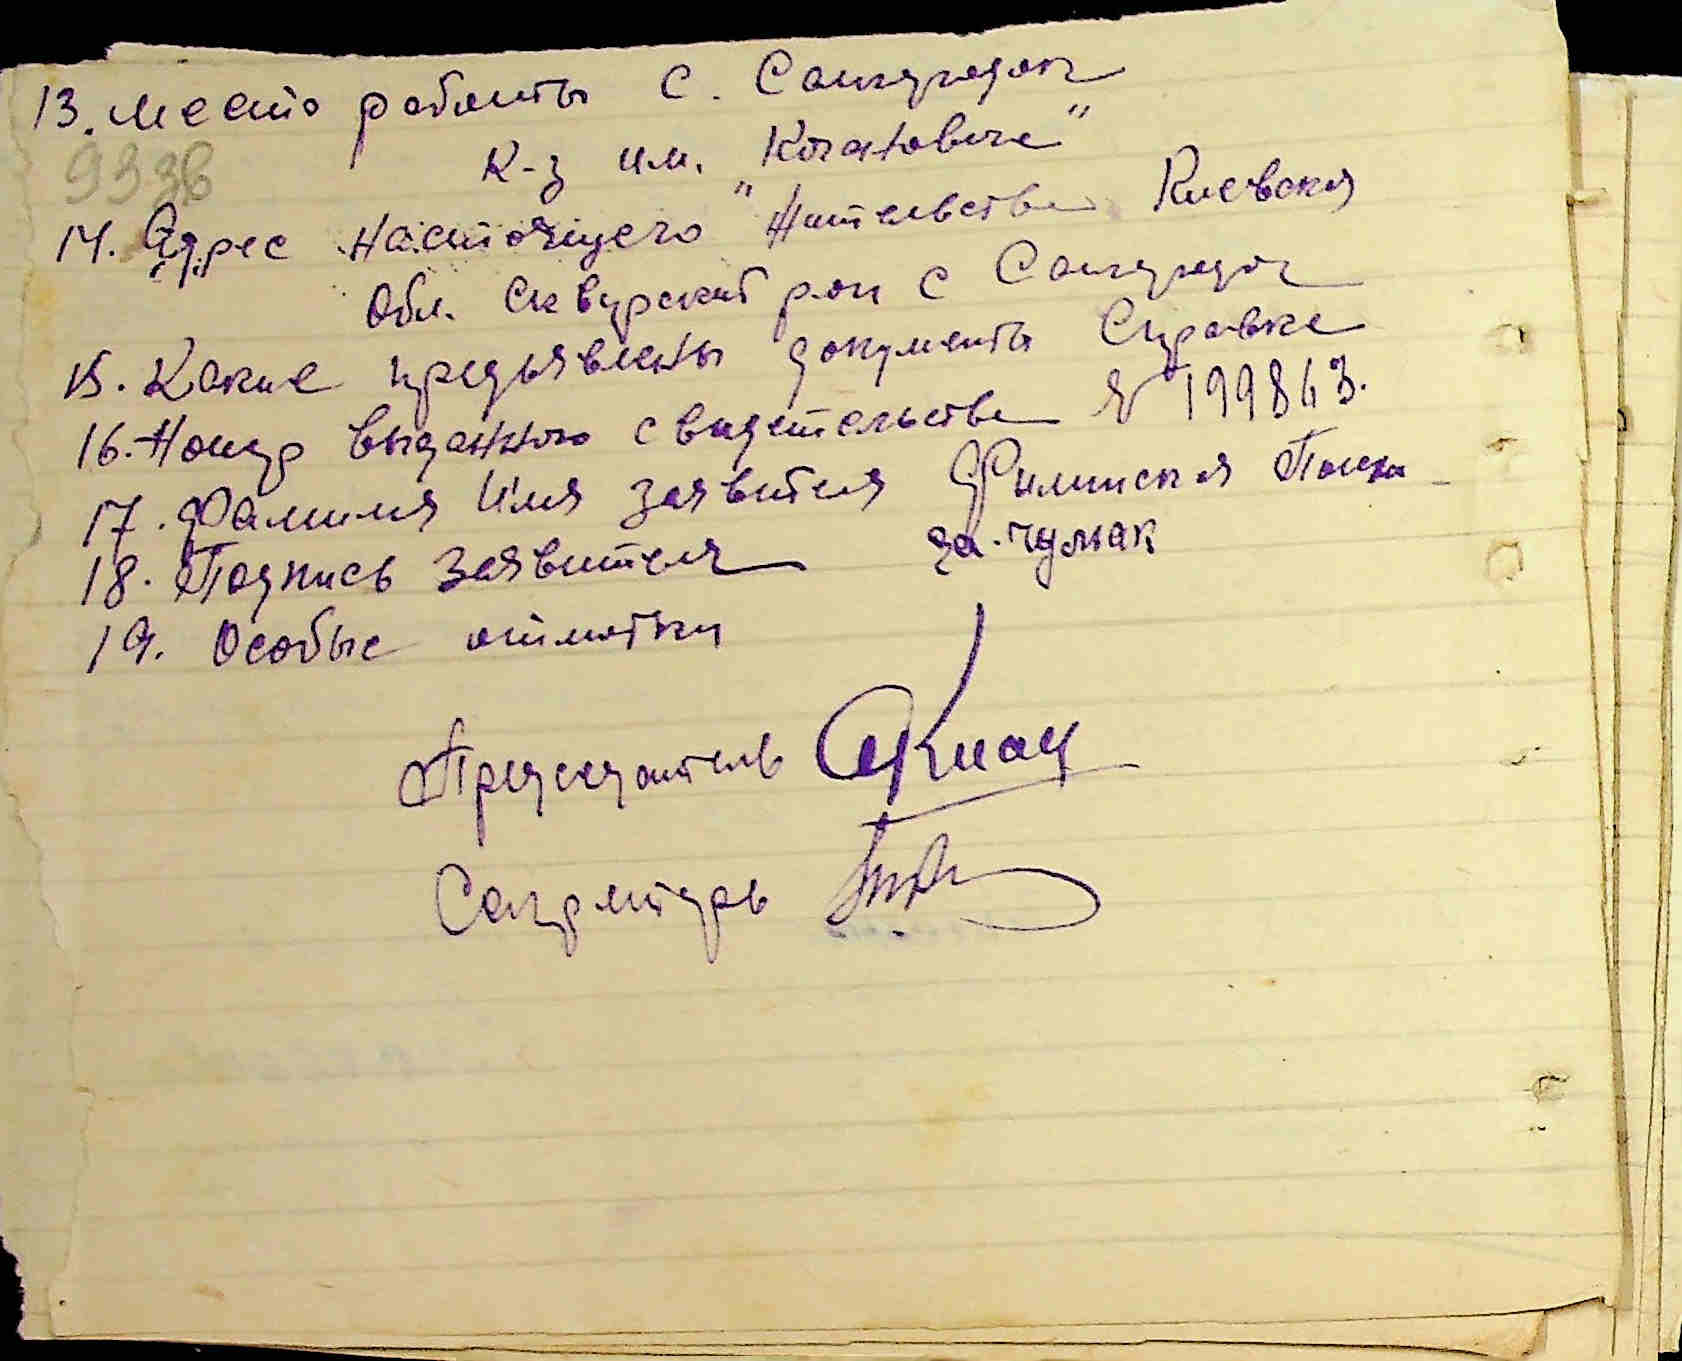 13. Место работы с.
к-з им. "Коганович"
93 зв
14. Адрес настоящего жительства Киевская
Обл. Сквирский р-он с
15. Какие предъявлены документы Справка
16. Номер выданного свидетельства № 199863.
17. Фамилия Имя заявителя
18. Подпись заявителя за. чумак
19. Особые отметки
Председатель
Секретарь